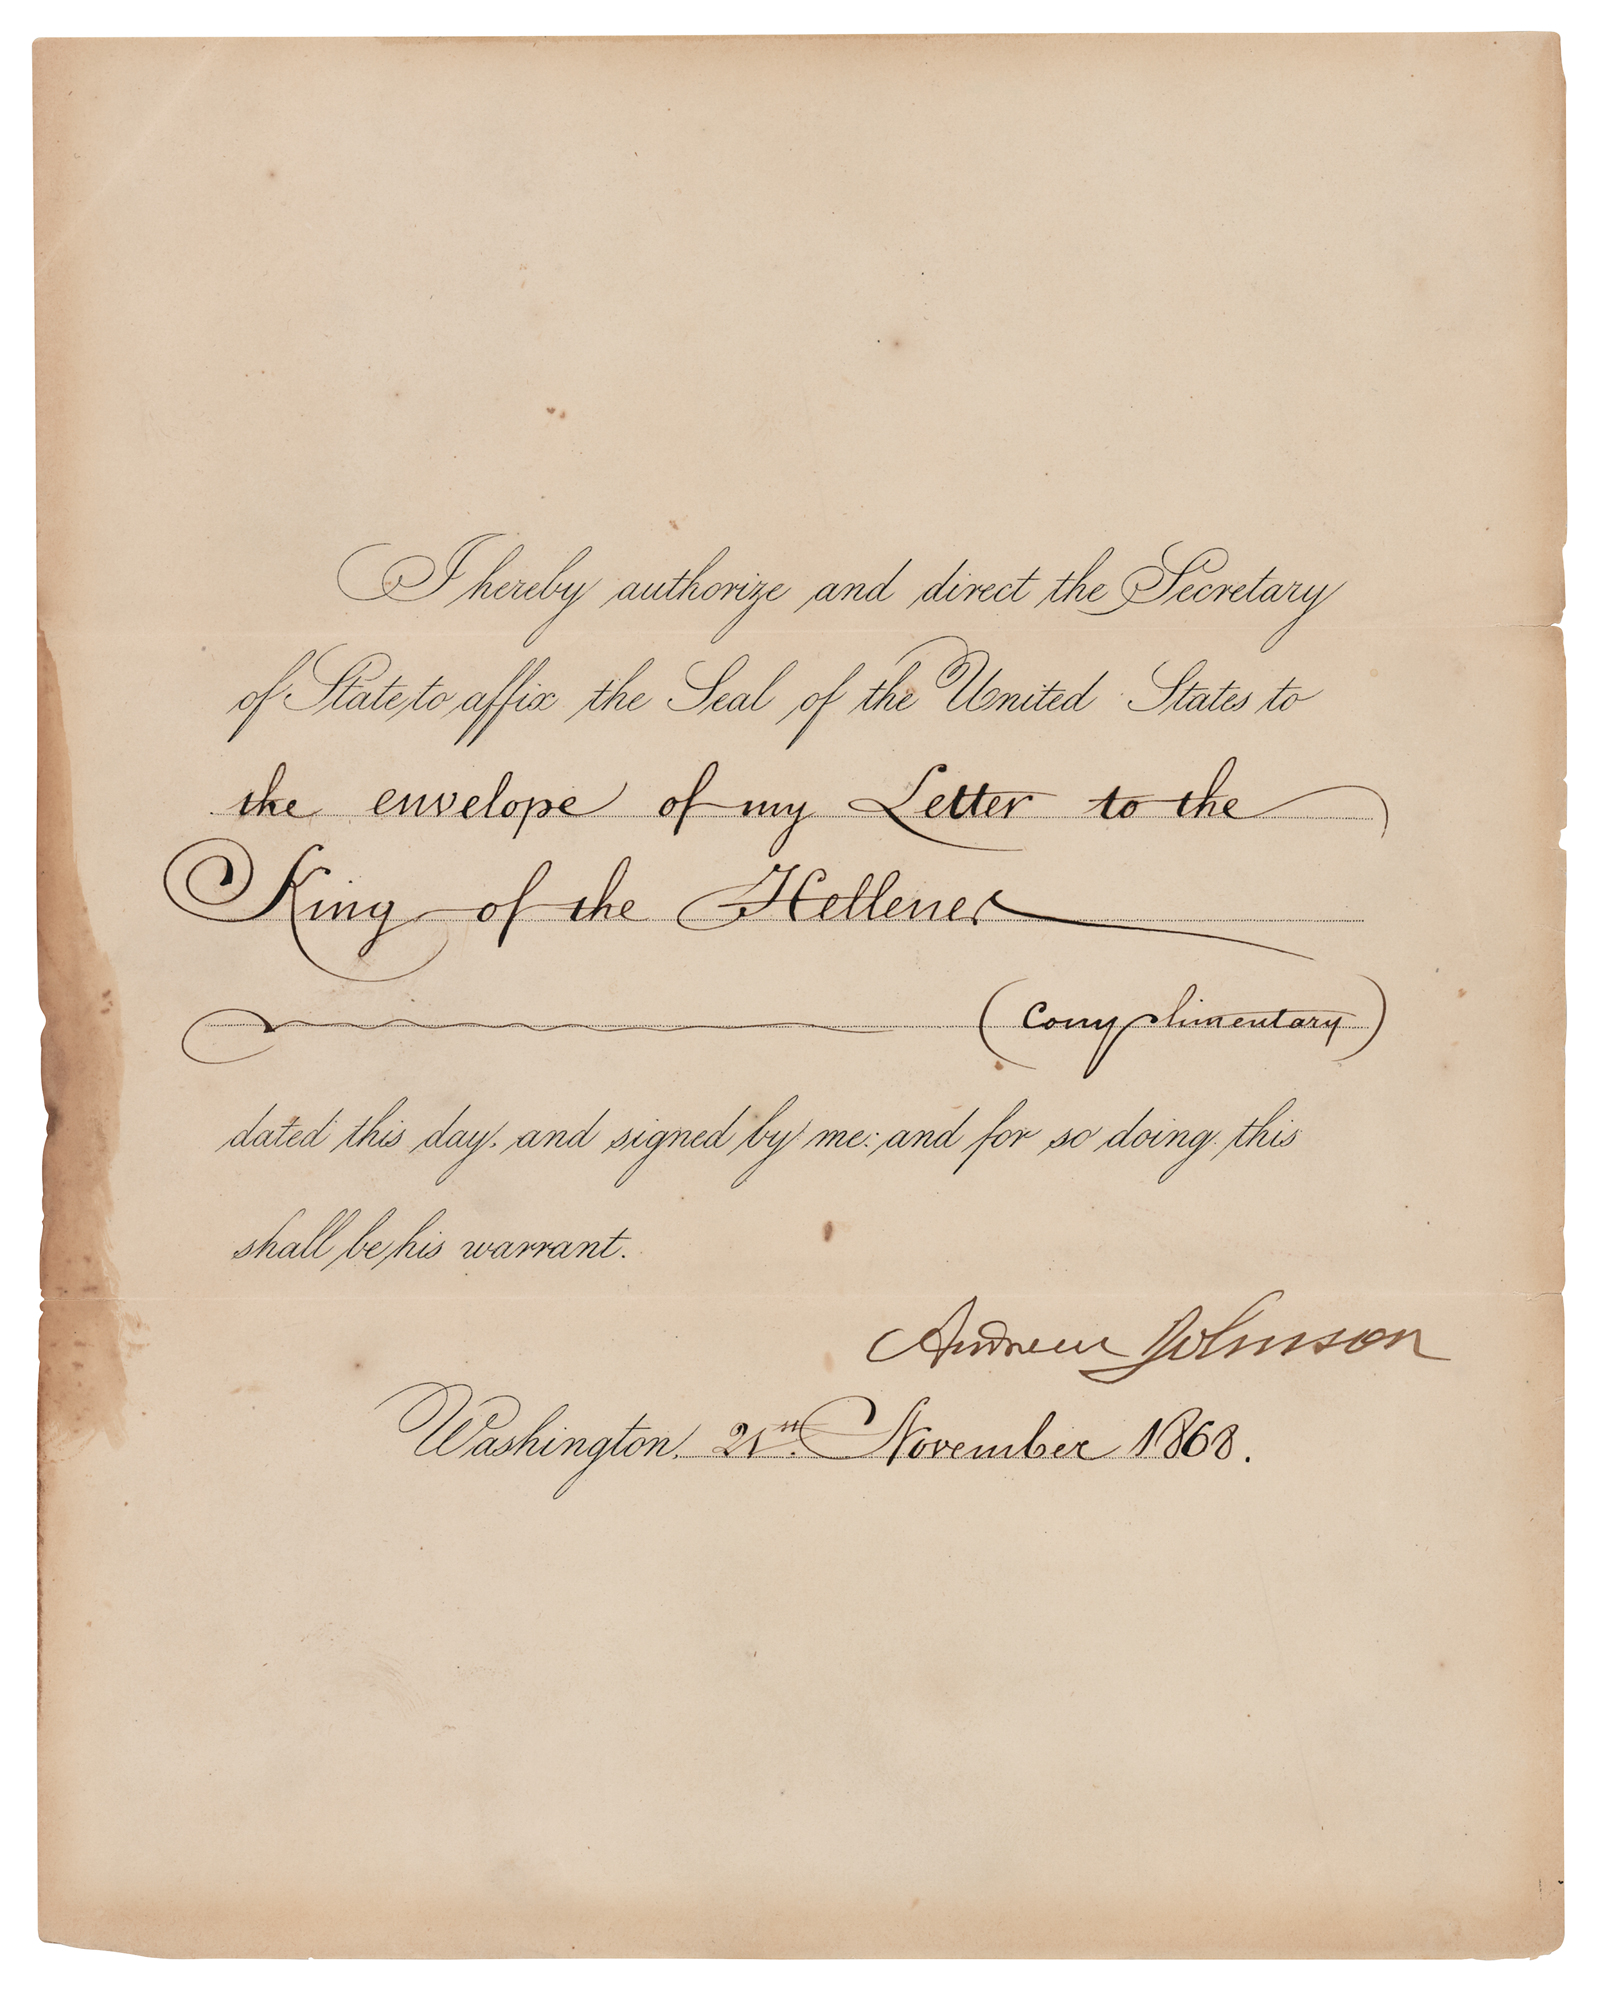 I hereby authorize and direct the Secretary
of State to affix the Seal of the United States to
the envelope of my Letter to the
King of the Hellenes
(complimentary)
dated this day, and signed by me: and for so doing this
shall be his warrant.
Andrew Johnson
Washington, 21st. November 1868.